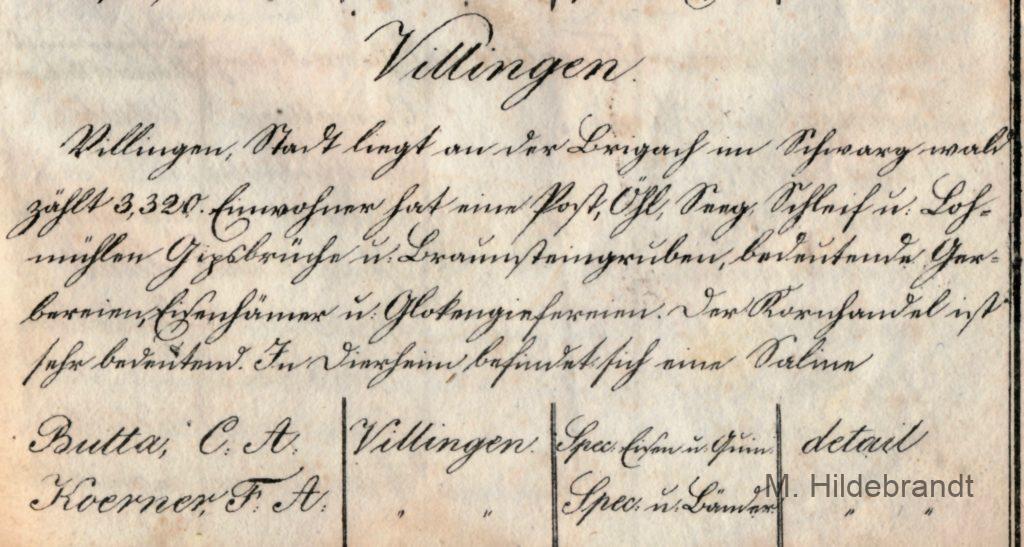 Villingen.
Villingen, Stadt liegt an der Brigach im Schwarzwald
zählt 3,320. Einwohner hat eine Post, Öhl, Seeg, Schleif u: Loh-
mühlen Gipsbrüche u: Braunsteingruben, bedeutende Ger-
bereien, Eisenhämer u: Glokengiesereien. Der Kornhandel ist
sehr bedeutend. In Dierheim befindet sich eine Saline
Butta, C. A. Villingen. Spec: Eisen u: Quin: detail
Koerner, F. A. " " Spec: u: Bänder " "
M. Hildebrandt